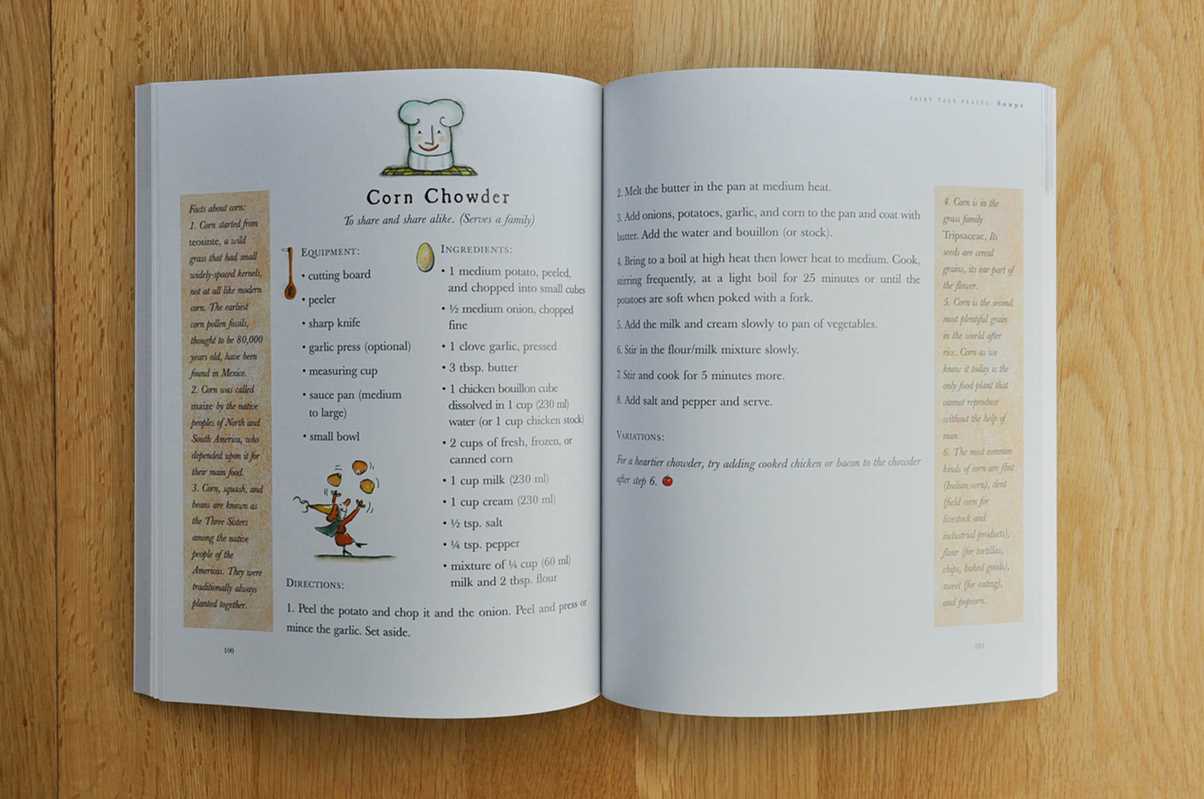 Corn Chowder
To share and share alike. (Serves a family)
Facts about corn:
1. Corn started from
teosinte, a wild
grass that had small
widely-spaced kernels,
not at all like modern
corn. The earliest
corn pollen fossils,
thought to be 80,000
years old, have been
found in Mexico.
2. Corn was called
maize by the native
peoples of North and
South America, who
depended upon it for
their main food.
3. Corn, squash, and
beans are known as
the Three Sisters
among the native
people of the
Americas. They were
traditionally always
planted together.
EQUIPMENT:
• cutting board
• peeler
• sharp knife
• garlic press (optional)
• measuring cup
• sauce pan (medium
to large)
• small bowl
INGREDIENTS:
• 1 medium potato, peeled,
and chopped into small cubes
• ½ medium onion, chopped
fine
• 1 clove garlic, pressed
• 3 tbsp. butter
• 1 chicken bouillon cube
dissolved in 1 cup (230 ml)
water (or 1 cup chicken stock)
• 2 cups of fresh, frozen, or
canned corn
• 1 cup milk (230 ml)
• 1 cup cream (230 ml)
• ½ tsp. salt
• ¼ tsp. pepper
• mixture of ¼ cup (60 ml)
milk and 2 tbsp. flour
DIRECTIONS:
1. Peel the potato and chop it and the onion. Peel and press or
mince the garlic. Set aside.
100
FAIRY TALE FEASTS: Soups
2. Melt the butter in the pan at medium heat.
3. Add onions, potatoes, garlic, and corn to the pan and coat with
butter. Add the water and bouillon (or stock).
4. Bring to a boil at high heat then lower heat to medium. Cook,
stirring frequently, at a light boil for 25 minutes or until the
potatoes are soft when poked with a fork.
5. Add the milk and cream slowly to pan of vegetables.
6. Stir in the flour/milk mixture slowly.
7. Stir and cook for 5 minutes more.
8. Add salt and pepper and serve.
VARIATIONS:
For a heartier chowder, try adding cooked chicken or bacon to the chowder
after step 6.
4. Corn is in the
grass family
Tripsaceae, Its
seeds are cereal
grains, its ear part of
the flower.
5. Corn is the second
most plentiful grain
in the world after
rice. Corn as we
know it today is the
only food plant that
cannot reproduce
without the help of
man.
6. The most common
kinds of corn are flint
(Indian corn), dent
(field corn for
livestock and
industrial products),
flour (for tortillas,
chips, baked goods),
sweet (for eating),
and popcorn.
101